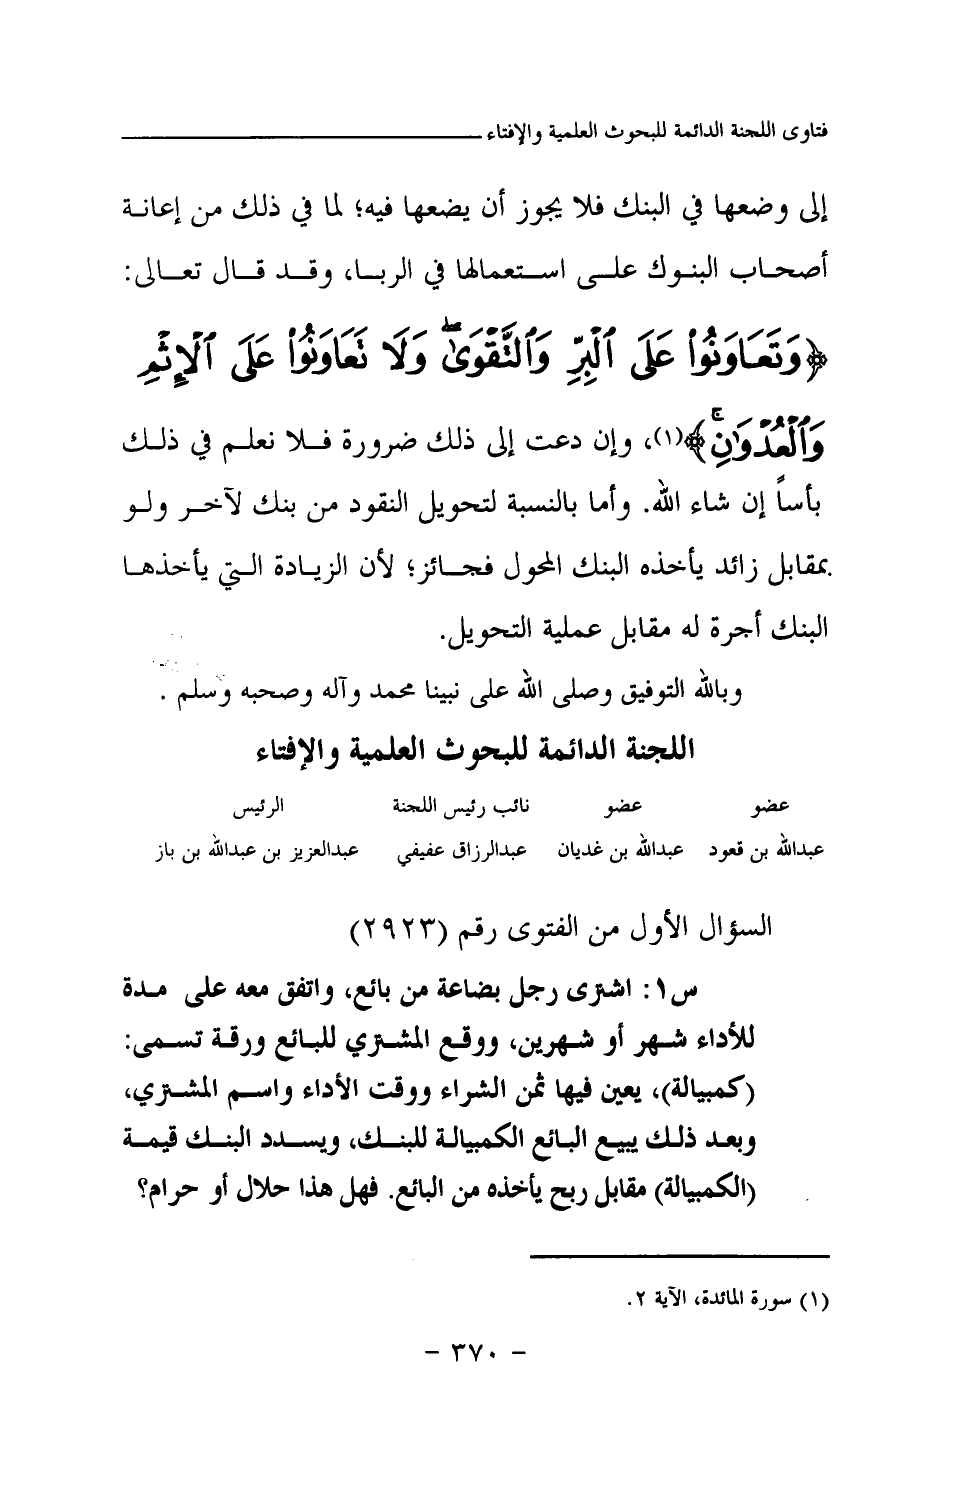 فتاوى اللجنة الدائمة للبحوث العلمية والإفتاء
إلى وضعها في البنك فلا يجوز أن يضعها فيه؛ لما في ذلك من إعانة
أصحاب البنوك على استعمالها في الربا، وقد قال تعالى:
﴿وَتَعَاوَنُوا۟ عَلَى ٱلْبِرِّ وَٱلتَّقْوَىٰ ۖ وَلَا تَعَاوَنُوا۟ عَلَى ٱلْإِثْمِ
وَٱلْعُدْوَٰنِ ۚ﴾(١)، وإن دعت إلى ذلك ضرورة فلا نعلم في ذلك
بأساً إن شاء الله. وأما بالنسبة لتحويل النقود من بنك لآخر ولو
بمقابل زائد يأخذه البنك المحول فجائز؛ لأن الزيادة التي يأخذها
البنك أجرة له مقابل عملية التحويل.
وبالله التوفيق وصلى الله على نبينا محمد وآله وصحبه وسلم .
اللجنة الدائمة للبحوث العلمية والإفتاء
عضو عضو نائب رئيس اللجنة الرئيس
عبدالله بن قعود عبدالله بن غديان عبدالرزاق عفيفي عبدالعزيز بن عبدالله بن باز
السؤال الأول من الفتوى رقم (٢٩٢٣)
س١: اشترى رجل بضاعة من بائع، واتفق معه على مدة
للأداء شهر أو شهرين، ووقع المشتري للبائع ورقة تسمى:
(كمبيالة)، يعين فيها ثمن الشراء ووقت الأداء واسم المشتري،
وبعد ذلك يبيع البائع الكمبيالة للبنك، ويسدد البنك قيمة
(الكمبيالة) مقابل ربح يأخذه من البائع. فهل هذا حلال أو حرام؟
(١) سورة المائدة، الآية ٢.
- ٣٧٠ -